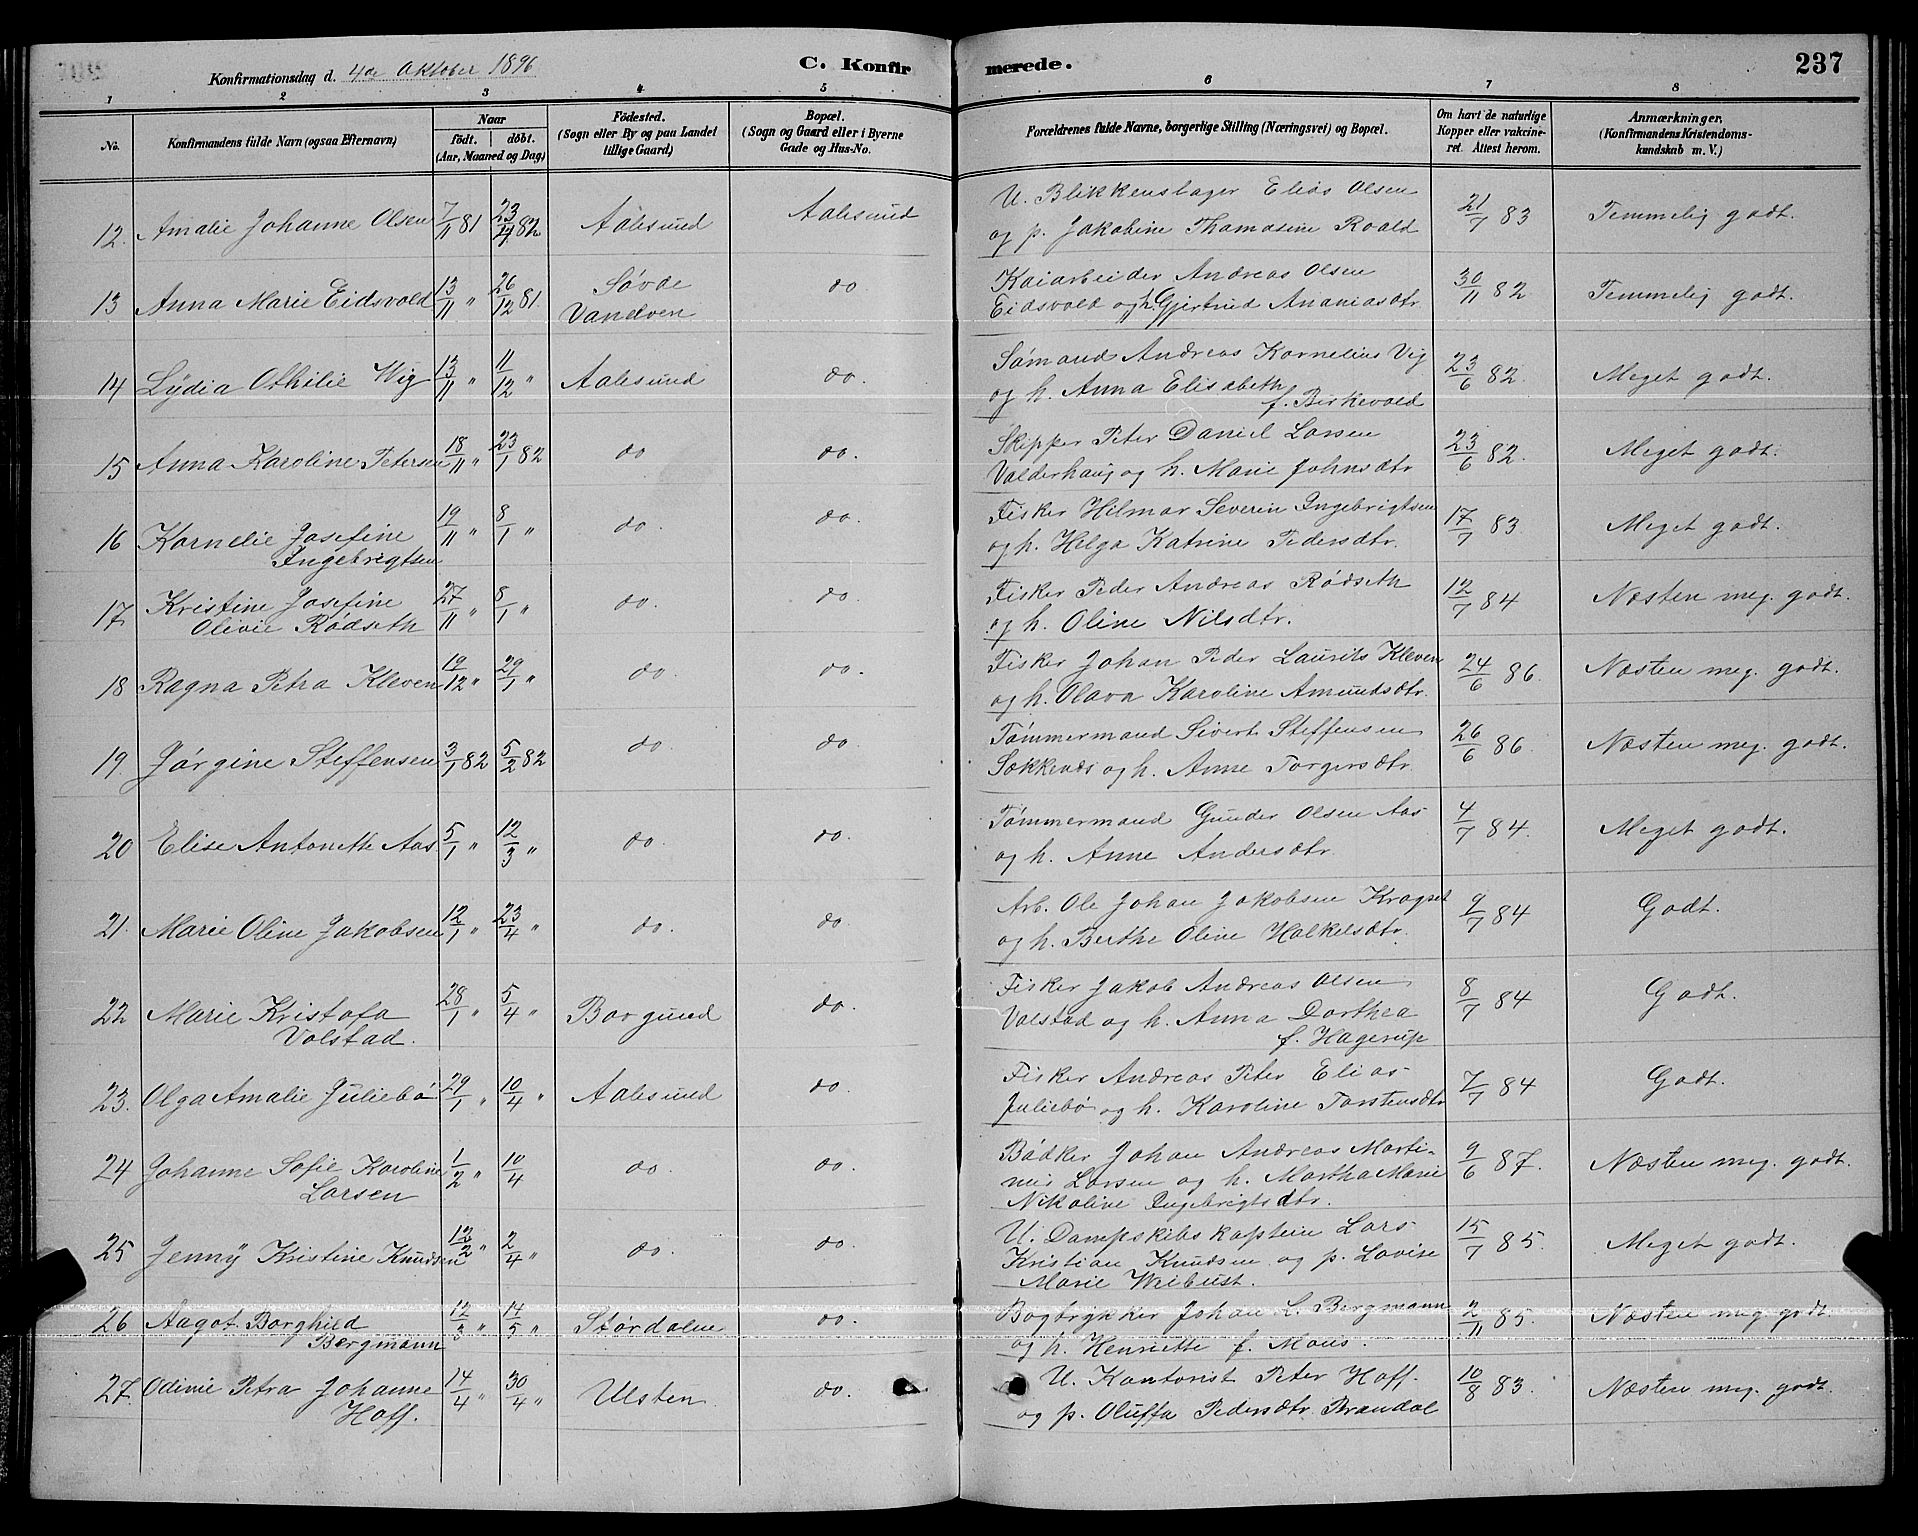 Konfirmationsdag d. 4de Oktober 1896
C. Konfirmerede.
237
1 2 3 4 5 6 7 8
No.
Konfirmandens fulde Navn (ogsaa Efternavn)
Naar
födt. döbt.
(Aar, Maaned og Dag)
Födested.
(Sogn eller By og paa Landet
tillige Gaard)
Bopæl.
(Sogn og Gaard eller i Byerne
Gade og Hus-No.
Forældrenes fulde Navne, borgerlige Stilling (Næringsvei) og Bopæl.
Om havt de naturlige
Kopper eller vakcine-
ret. Attest herom.
Anmærkninger.
(Konfirmandens Kristendoms-
kundskab m. V.)
12. Amalie Johanne Olsen 7/11 81 23/4 82 Aalesund Aalesund
U. Blikkenslager Elias Olsen
og p. Jakobine Thomasine Roald 21/7 83 Temmelig godt.
13 Anna Marie Eidsvold 13/11 " 26/12 81. Søvde do
Vandven
Kaiarbeider Andreas Olsen
Eidsvold og h. Gjertrud Ananiasdtr. 30/11 82 Temmelig godt.
14 Lydia Othilie Wig 13/11 " 11/12 " Aalesund do.
Sømand Andreas Kornelius Vig
og h. Anna Elisabeth 23/6 82. Meget godt.
f. Birkevold
15 Anna Karoline Petersen 18/11 " 23/1 82 do do.
Skipper Peter Daniel Larsen
Valderhaug og h. Marie Johnsdtr 23/6 82. Meget godt.
16 Kornelie Josefine 19/11 " 8/1 " do. do.
Ingebrigtsen
Fisker Hilmar Severin Ingebrigtsen
og h. Helga Katrine Pedersdtr. 17/7 83 Meget godt.
17 Kristine Josefine 27/11 " 8/1 " do. do.
Olivie Rødseth
Fisker Peder Andreas Rødseth
og h. Oline Nilsdtr. 12/7 84 Næsten meg. godt.
18 Ragna Petra Kleven 19/12 " 29/1 " do. do.
Fisker Johan Peder Laurits Kleven
og h. Olava Karoline Amundsdtr. 24/6 86. Næsten meg. godt.
19. Jørgine Steffensen 3/1 82 5/2 82 do. do.
Tømmermand Sivert Steffensen
Søkkenes og h. Anne Torgersdtr. 26/6 86. Næsten meg. godt.
20 Elise Antonette Aas 5/1 " 12/3 " do. do.
Tømmermand Gunder Olsen Aas
og h. Anne Andersdtr. 4/7 84. Meget godt.
21. Marie Oline Jakobsen 12/1 " 23/4 " do. do.
Arb. Ole Johan Jakobsen Kragset
og h. Berthe Oline Halkelsdtr. 9/7 84 Godt.
22 Marie Kristofa 28/1 " 5/4 " Borgund do.
Volstad.
Fisker Jakob Andreas Olsen
Valstad og h. Anna Dorthea 8/7 84 Godt.
f. Hagerup
23. Olga Amalie Juliebø 29/1 " 10/4 " Aalesund do.
Fisker Andreas Peter Elias
Juliebø og h. Karoline Torstensdtr 7/7 84 Godt.
24 Johanne Sofie Karoline 1/2 " 10/4 do. do.
Larsen
Bødker Johan Andreas Marti-
nus Larsen og h. Martha Marie 9/6 87. Næsten meg. godt.
Nikoline Ingebrigtsdtr.
25 Jenny Kristine Knudsen 12/2 " 2/4 " do. do.
U. Dampskibskaptein Lars
Kristian Knudsen og p. Lovise 15/7 85. Meget godt.
Marie Weibust.
26 Aagot Borghild 12/3 " 14/5 " Størdalen do.
Bergmann
Bogtrykker Johan L. Bergmann
og h. Henriette f. Mous. 2/11 85. Næsten meg. godt.
27. Odinie Petra Johanne 14/4 " 30/4 " Ulsten do.
Hoff.
U. Kontorist Peter Hoff
og p. Oluffa Pedersdtr Brandal 10/8 83. Næsten meg. godt.